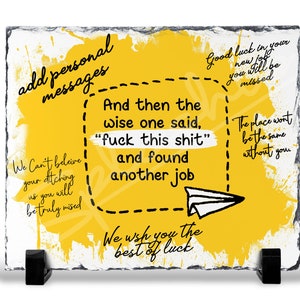 add personal
messages
Good luck in your
new job
you will be
missed
And then the
wise one said,
"fuck this shit"
and found
another job
The place won't
be the same
without you.
We Can't beleive
your ditching
us you will
be truly mised
We wsh you the
best of luck